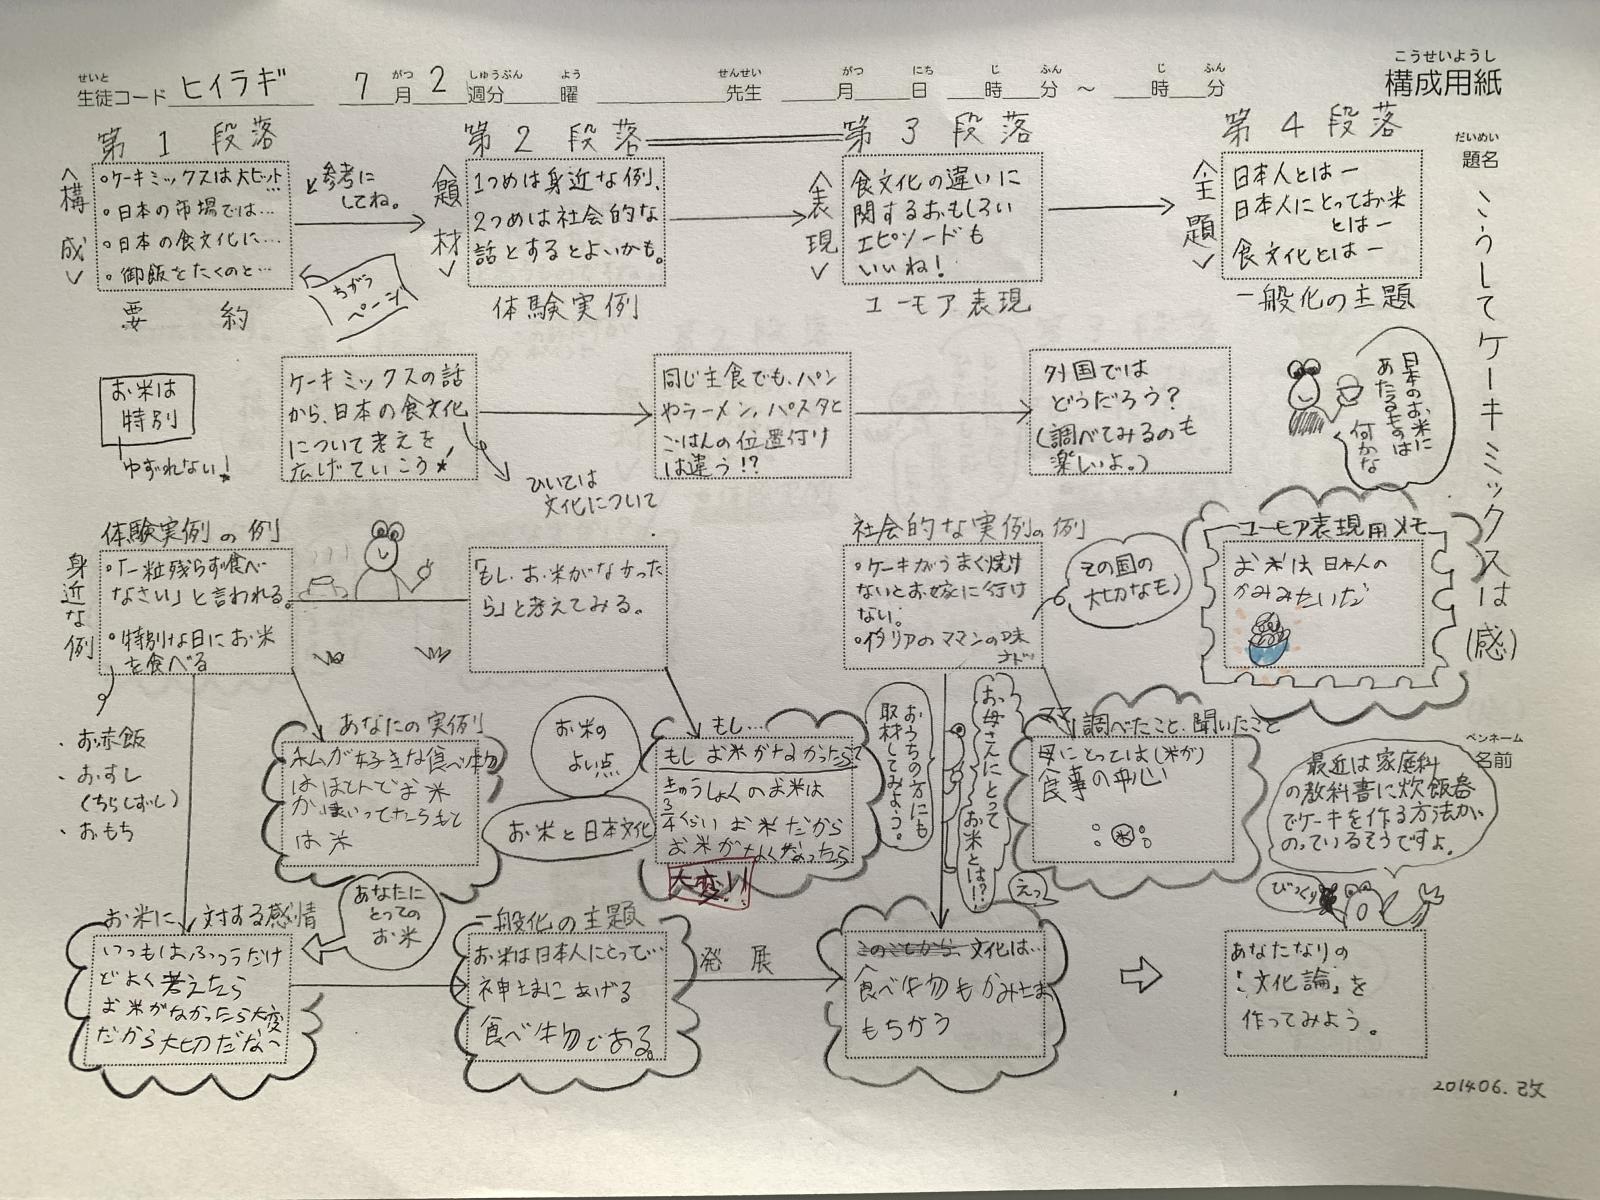 こうせいようし
構成用紙
せいと
生徒コード ヒイラギ
がつ しゅうぶん よう
7月2週分 曜
せんせい
先生
がつ にち じ ふん じ ふん
月 日 時 分 ～ 時 分
だいめい
題名
こうしてケーキミックスは(感)
ペンネーム
名前
第1段落
<構成>
•ケーキミックスは大ヒット…
•日本の市場では…
•日本の食文化に…
•御飯をたくのと…
要約
と参考に
してね。
ちがう
ページ
第2段落
<題材>
1つめは身近な例、
2つめは社会的な
話とするとよいかも。
体験実例
第3段落
<表現>
食文化の違いに
関するおもしろい
エピソードも
いいね!
ユーモア表現
第4段落
<主題>
日本人とはー
日本人にとってお米
とはー
食文化とはー
一般化の主題
お米は
特別
ゆずれない!
ケーキミックスの話
から、日本の食文化
について考えを
広げていこう★
ひいては
文化について
同じ主食でも、パン
やラーメン、パスタと
ごはんの位置付け
は違う!?
外国では
どうだろう?
(調べてみるのも
楽しいよ。)
日本のお米に
あたるものは
何かな
体験実例の例
身近な例
•「一粒残らず食べ
なさい」と言われる。
•特別な日にお米
を食べる
・お赤飯
・おすし
(ちらしずし)
・おもち
「もし、お米がなかった
ら」と考えてみる。
社会的な実例の例
•ケーキがうまく焼け
ないとお嫁に行け
ない。
•イタリアのママンの味
など
その国の
大切なもの
ユーモア表現用メモ
お米は日本人の
かみみたいだ
あなたの実例
私が好きな食べ物
はほとんどお米
は米
お米の
よい点
お米と日本文化
もし…
もしお米がなかったらて
きゅうしょくのお米は
3/4くらいお米だから
お米がなくなったら
大変!!
おうちの方にも
取材してみよう。
お母さんにとって
お米とは?!
えっ
調べたこと、聞いたこと
ママ
母にとっては(米が)
食事の中心
米
最近は家庭科
の教科書に炊飯器
でケーキを作る方法が
のっているそうですよ。
びっくり
お米に対する感情
いつもはふつうだけ
どよく考えたら
お米がなかったら大変
だから大切だな~
あなたに
とっての
お米
一般化の主題
お米は日本人にとって…
神さまにあげる
食べ物である。
発展
このことから、文化は…
食べ物もかみさま
もちがう
あなたなりの
「文化論」を
作ってみよう。
201406.改